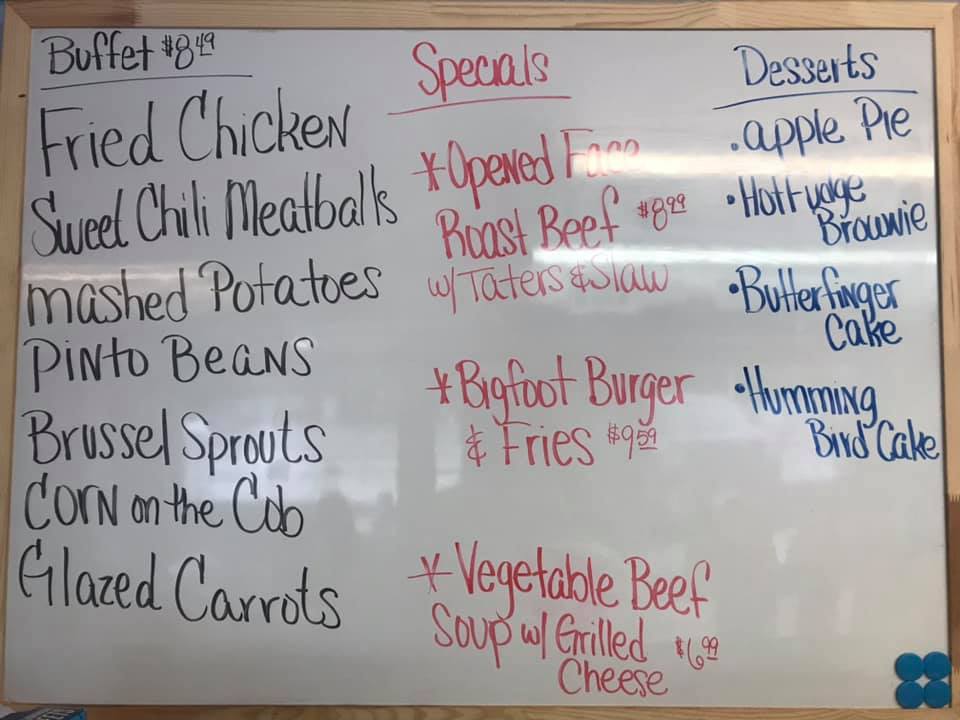 Buffet $8.49
Fried Chicken
Sweet Chili Meatballs
mashed Potatoes
Pinto Beans
Brussel Sprouts
Corn on the Cob
Glazed Carrots
Specials
*Opened Face
Roast Beef $8.99
w/ Taters & Slaw
*Bigfoot Burger
& Fries $9.59
*Vegetable Beef
Soup w/ Grilled $6.99
Cheese
Desserts
•apple Pie
•Hot Fudge
Brownie
•Butterfinger
Cake
•Humming
Bird Cake